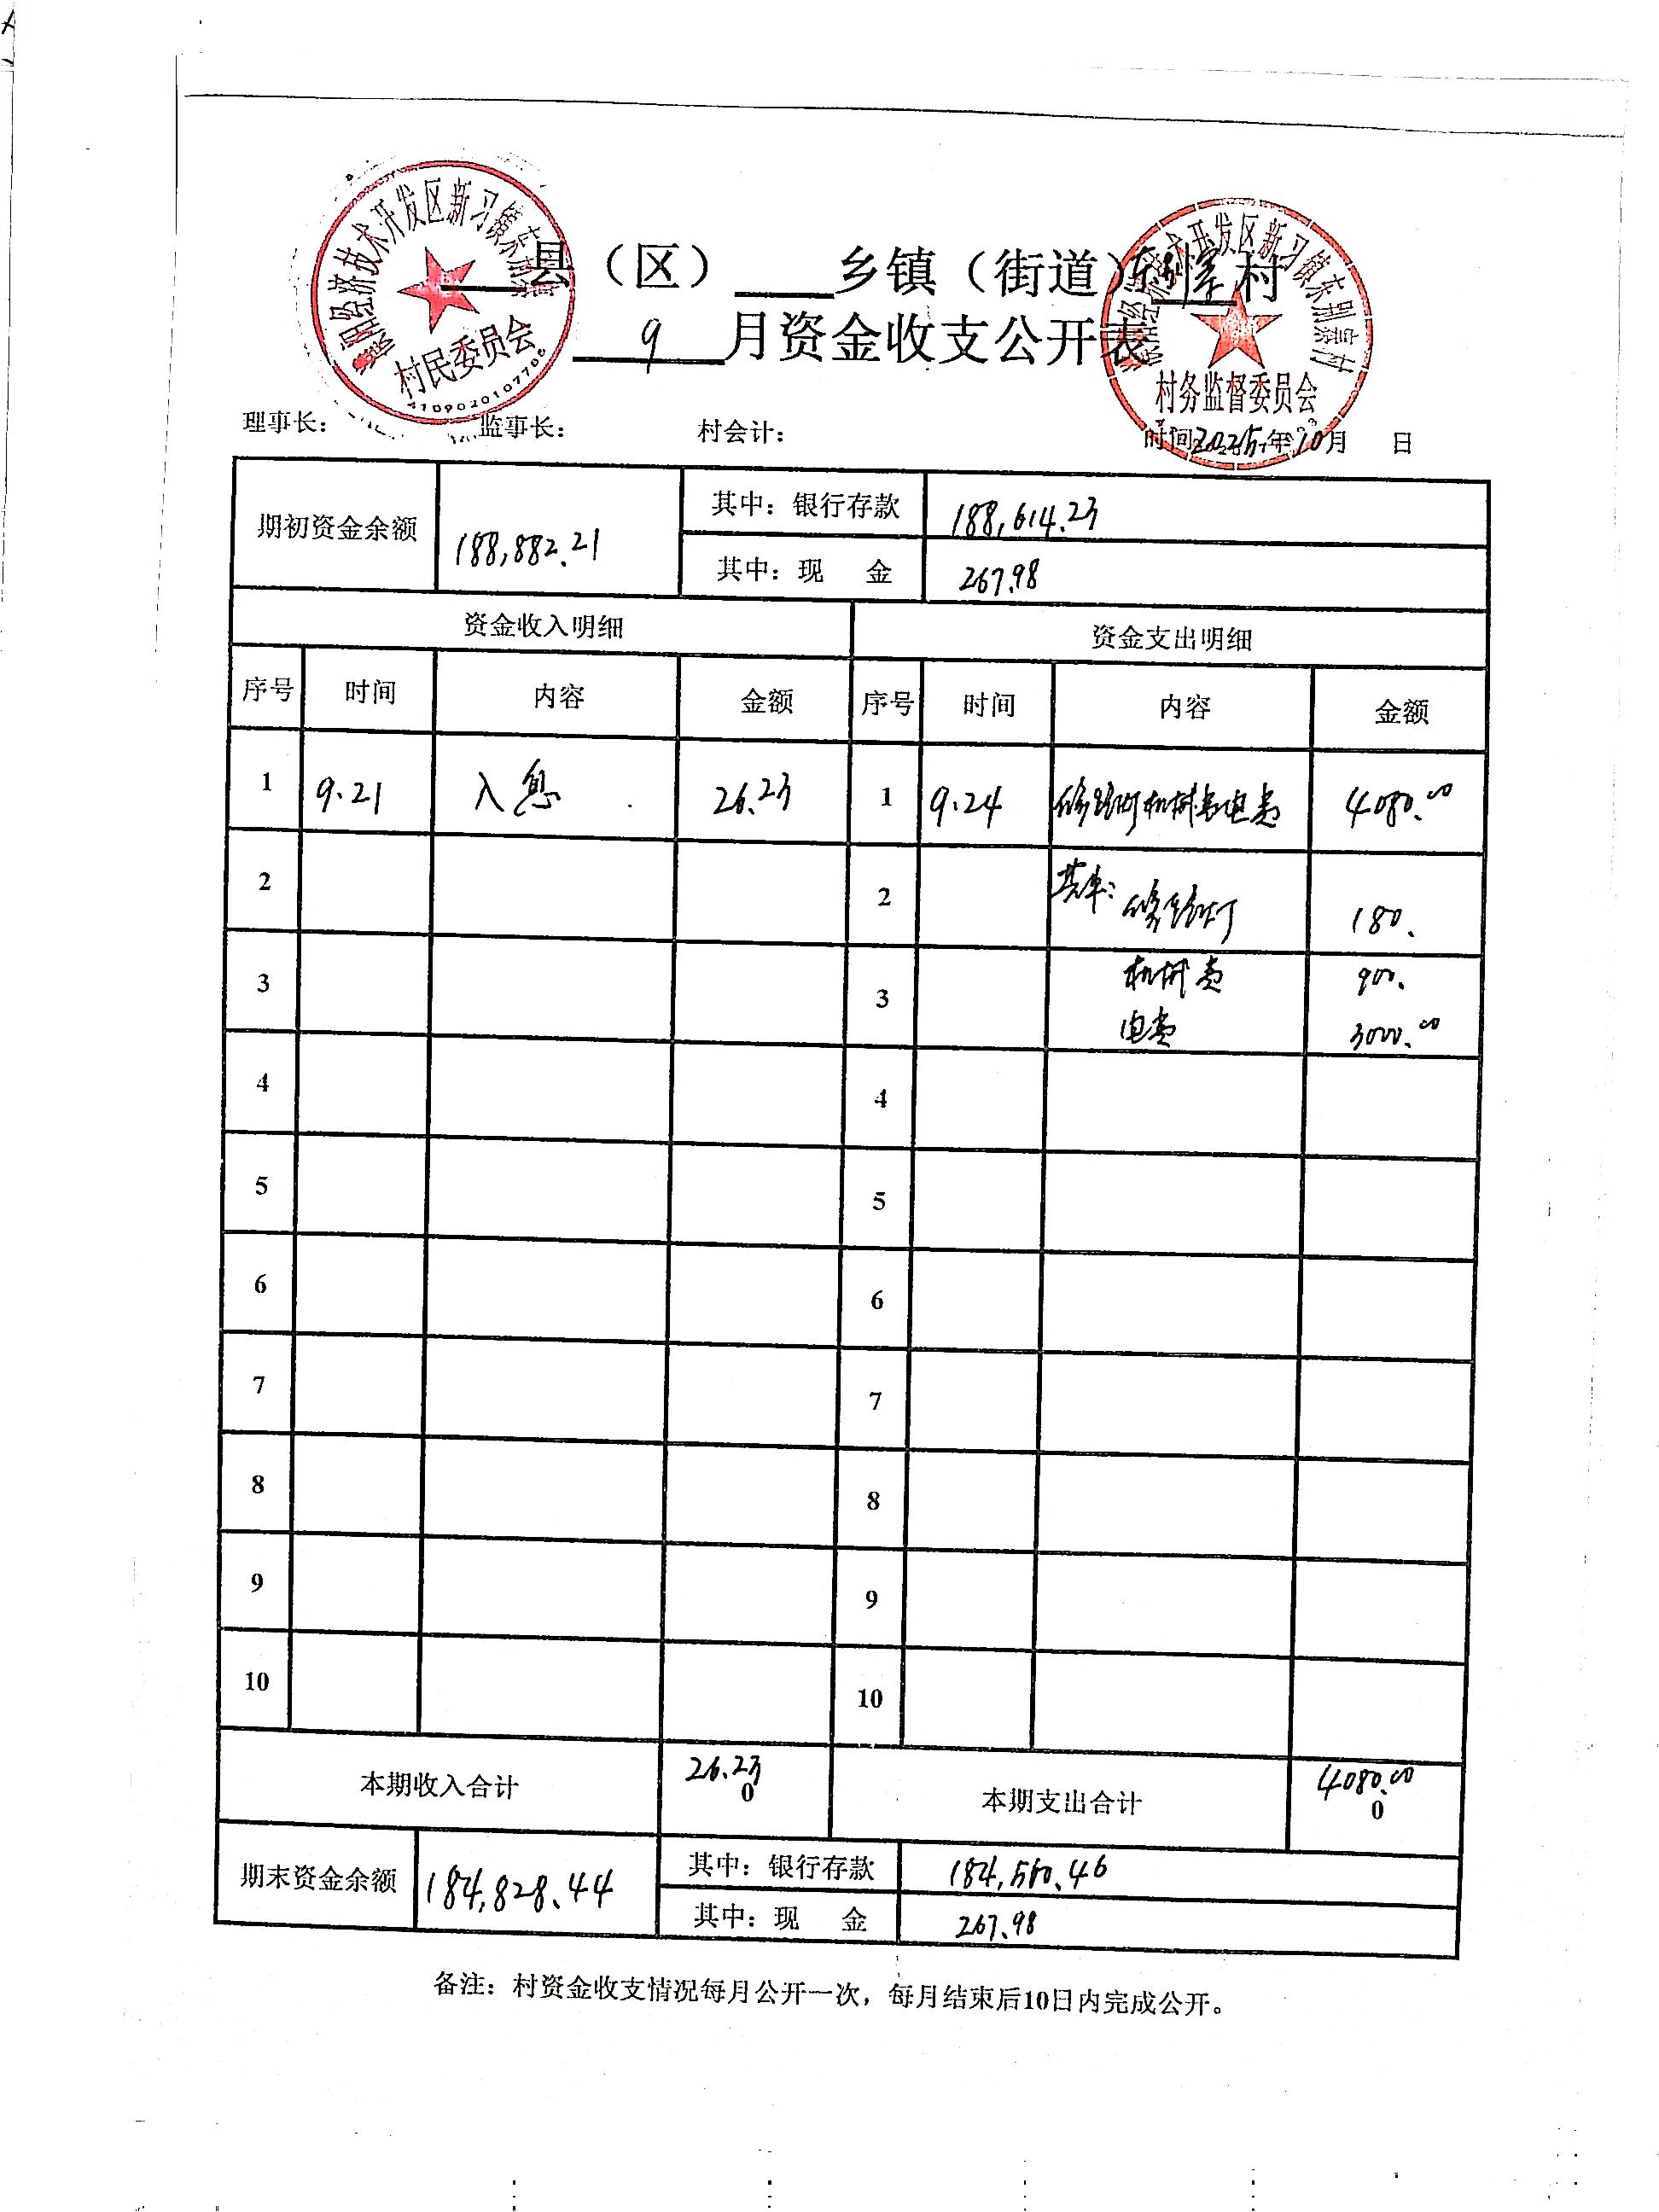 濮阳经济技术开发区新习镇东别寨村
村民委员会
濮阳经济技术开发区新习镇东别寨村
村务监督委员会
县（区）乡镇（街道）东别寨村
9月资金收支公开表
理事长： 监事长： 村会计： 时间2025年10月 日
期初资金余额 188,882.21 其中：银行存款 188,614.23
其中：现 金 267.98
资金收入明细 资金支出明细
序号 时间 内容 金额 序号 时间 内容 金额
1 9.21 入息 26.23 1 9.24 修路灯机械费电费 4080.00
2 2 其中：修路灯 180.
3 3 机械费 900.
电费 3000.00
4 4
5 5
6 6
7 7
8 8
9 9
10 10
本期收入合计 26.23 本期支出合计 4080.00
0 0
期末资金余额 184,828.44 其中：银行存款 184,560.46
其中：现 金 267.98
备注：村资金收支情况每月公开一次，每月结束后10日内完成公开。